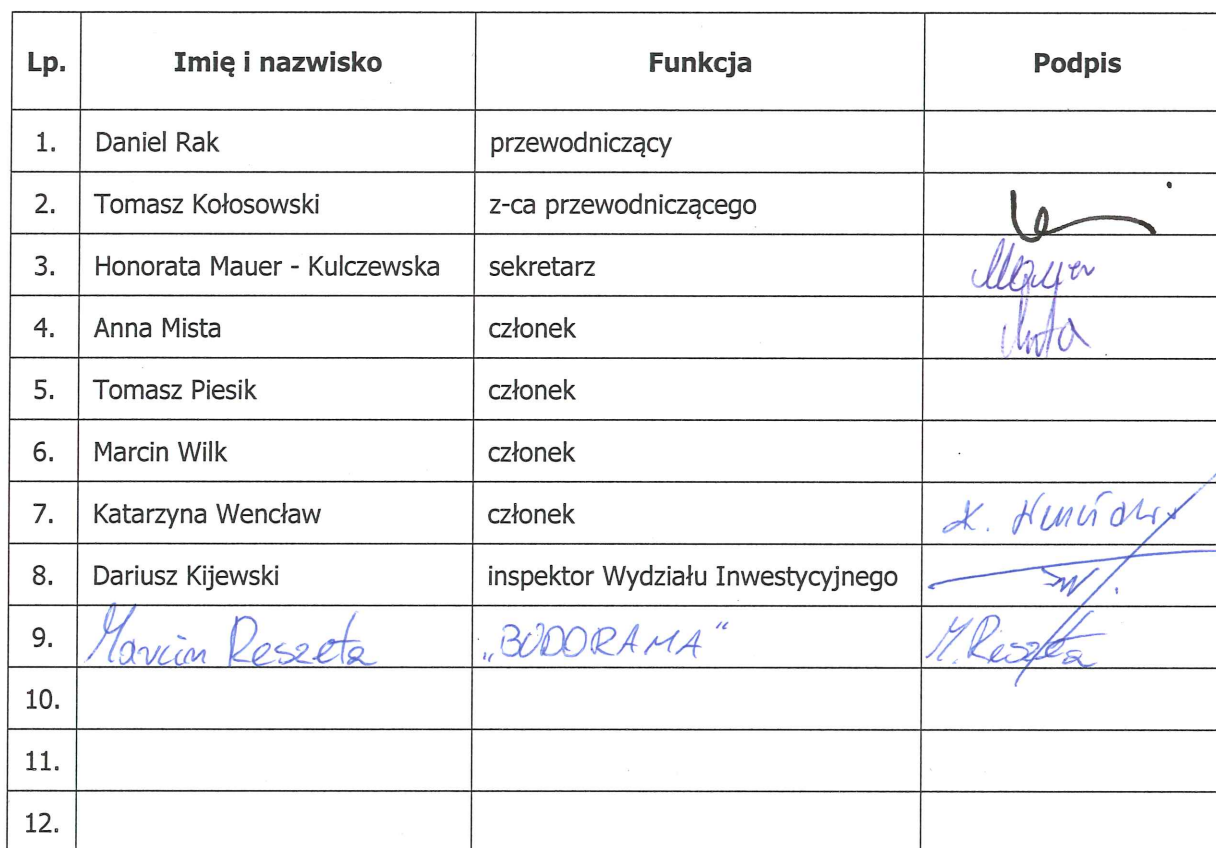 Lp. Imię i nazwisko Funkcja Podpis
1. Daniel Rak przewodniczący
2. Tomasz Kołosowski z-ca przewodniczącego
3. Honorata Mauer - Kulczewska sekretarz
4. Anna Mista członek
5. Tomasz Piesik członek
6. Marcin Wilk członek
7. Katarzyna Wencław członek K.
8. Dariusz Kijewski inspektor Wydziału Inwestycyjnego
9. Marcin Reszeta „BUDORAMA" M. Reszeta
10.
11.
12.